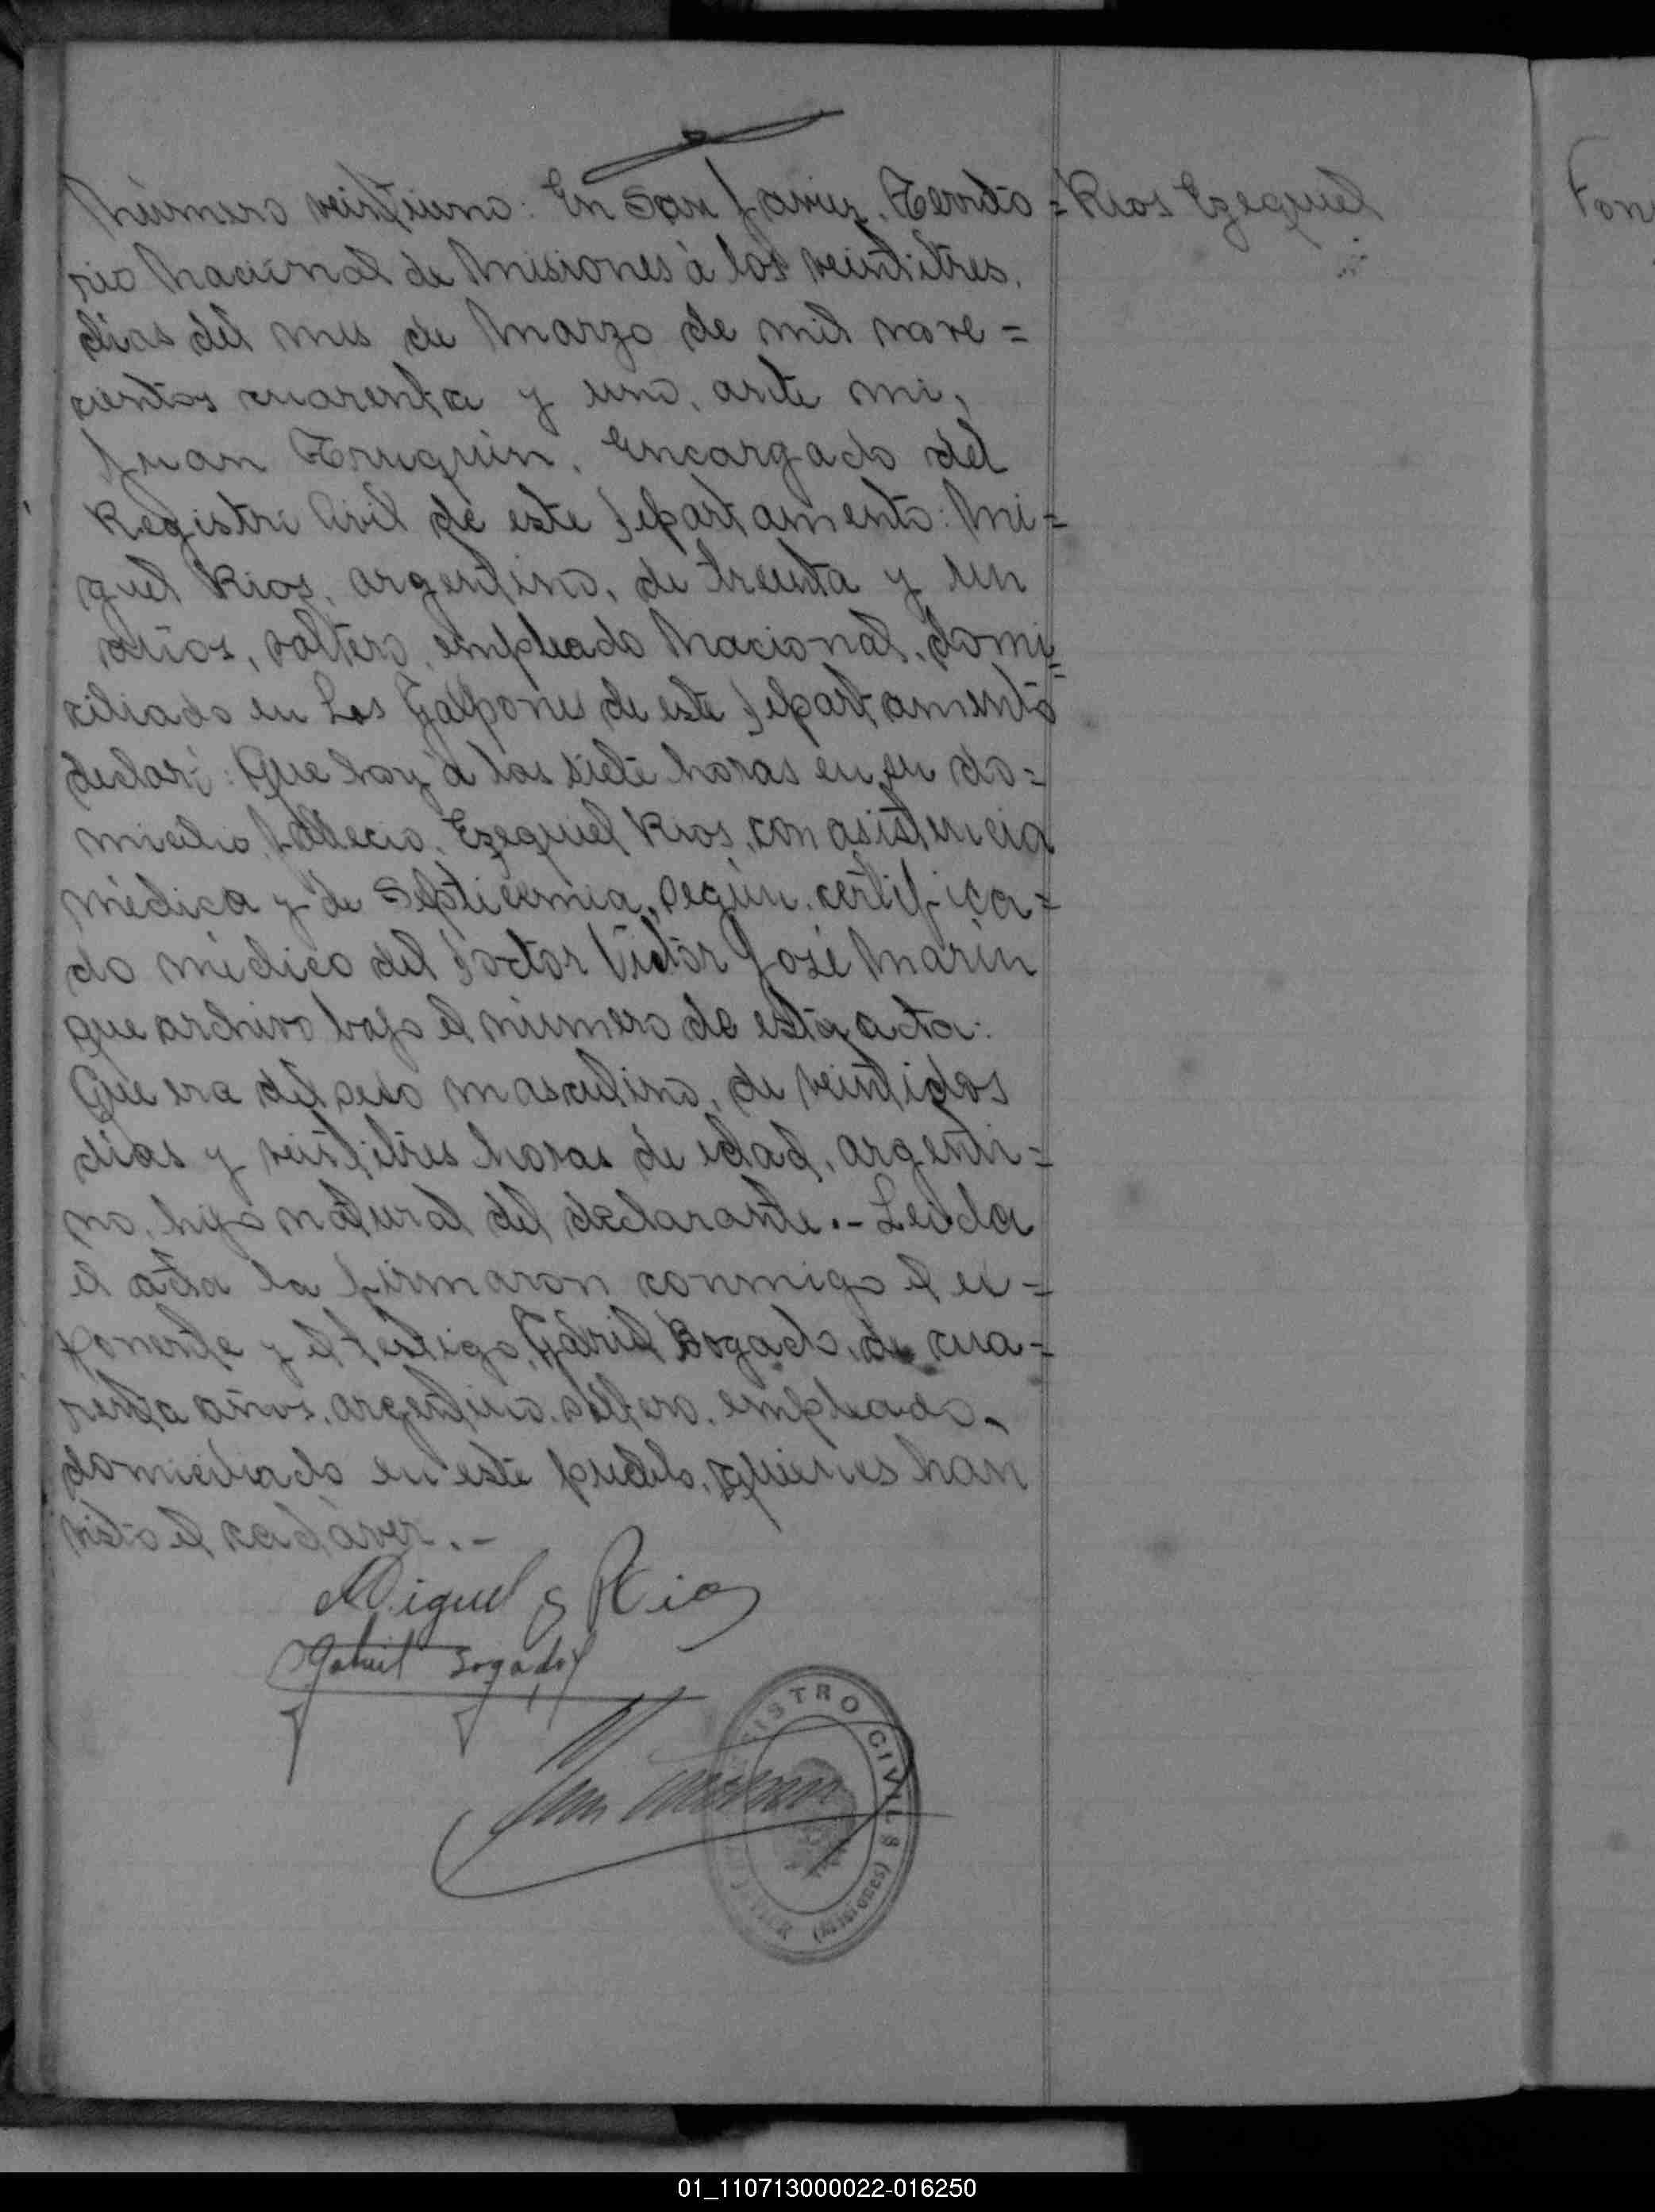 Número veintiuno: En San Javier, Territo =
Rios Ezequiel
rio Nacional de Misiones á los veintitres,
dias del mes de Marzo de mil nove =
cientos cuarenta y uno, ante mi,
Juan Encargado del
Registro Civil de este Departamento: Mi =
guel Rios, argentino, de treinta y un
años, soltero, empleado Nacional, domi =
ciliado en Los Galpones de este Departamento
declaró: Que hoy á las siete horas en su do =
micilio, fallecio, Ezequiel Rios, con asistencia
médica y de Septicemia, según, certifica =
do médico del Doctor Victor José Marin
que archivo bajo el número de esta acta:
Que era del sexo masculino, de veintidos
dias y veintitres horas de edad, argenti =
no, hijo natural del declarante.- Leida
el acta la firmaron conmigo el ex =
ponente y el testigo, Gabriel Bogado, de cua =
renta años, argentino, soltero, empleado,
domiciliado en este pueblo, quienes han
visto el cadáver.-
Miguel G Rios
Gabriel Bogado
REGISTRO CIVIL
SAN JAVIER (Misiones)
Fon
01_110713000022-016250